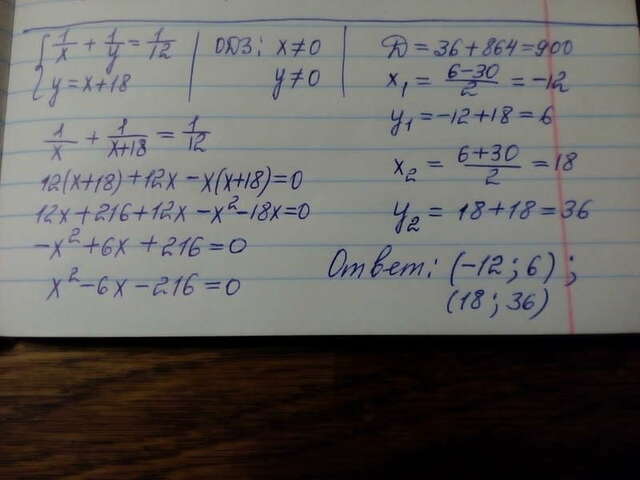 { 1/x + 1/y = 1/12
y = x+18
ОДЗ: x≠0
y≠0
1/x + 1/(x+18) = 1/12
12(x+18)+12x-x(x+18)=0
12x+216+12x-x²-18x=0
-x²+6x+216=0
x²-6x-216=0
D=36+864=900
x₁ = (6-30)/2 = -12
y₁=-12+18=6
x₂ = (6+30)/2 = 18
y₂ = 18+18=36
Ответ: (-12; 6);
(18; 36)